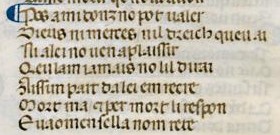 Pos a midonz no pot ualer
Dieus ni merces nil dreich queu ai
Ni a lei no uen a plaissir
Qeu lam iamais no lil dirai
Aissim part da lei em recre
Mort ma q per mort li respon
E uaomen sella nom rete